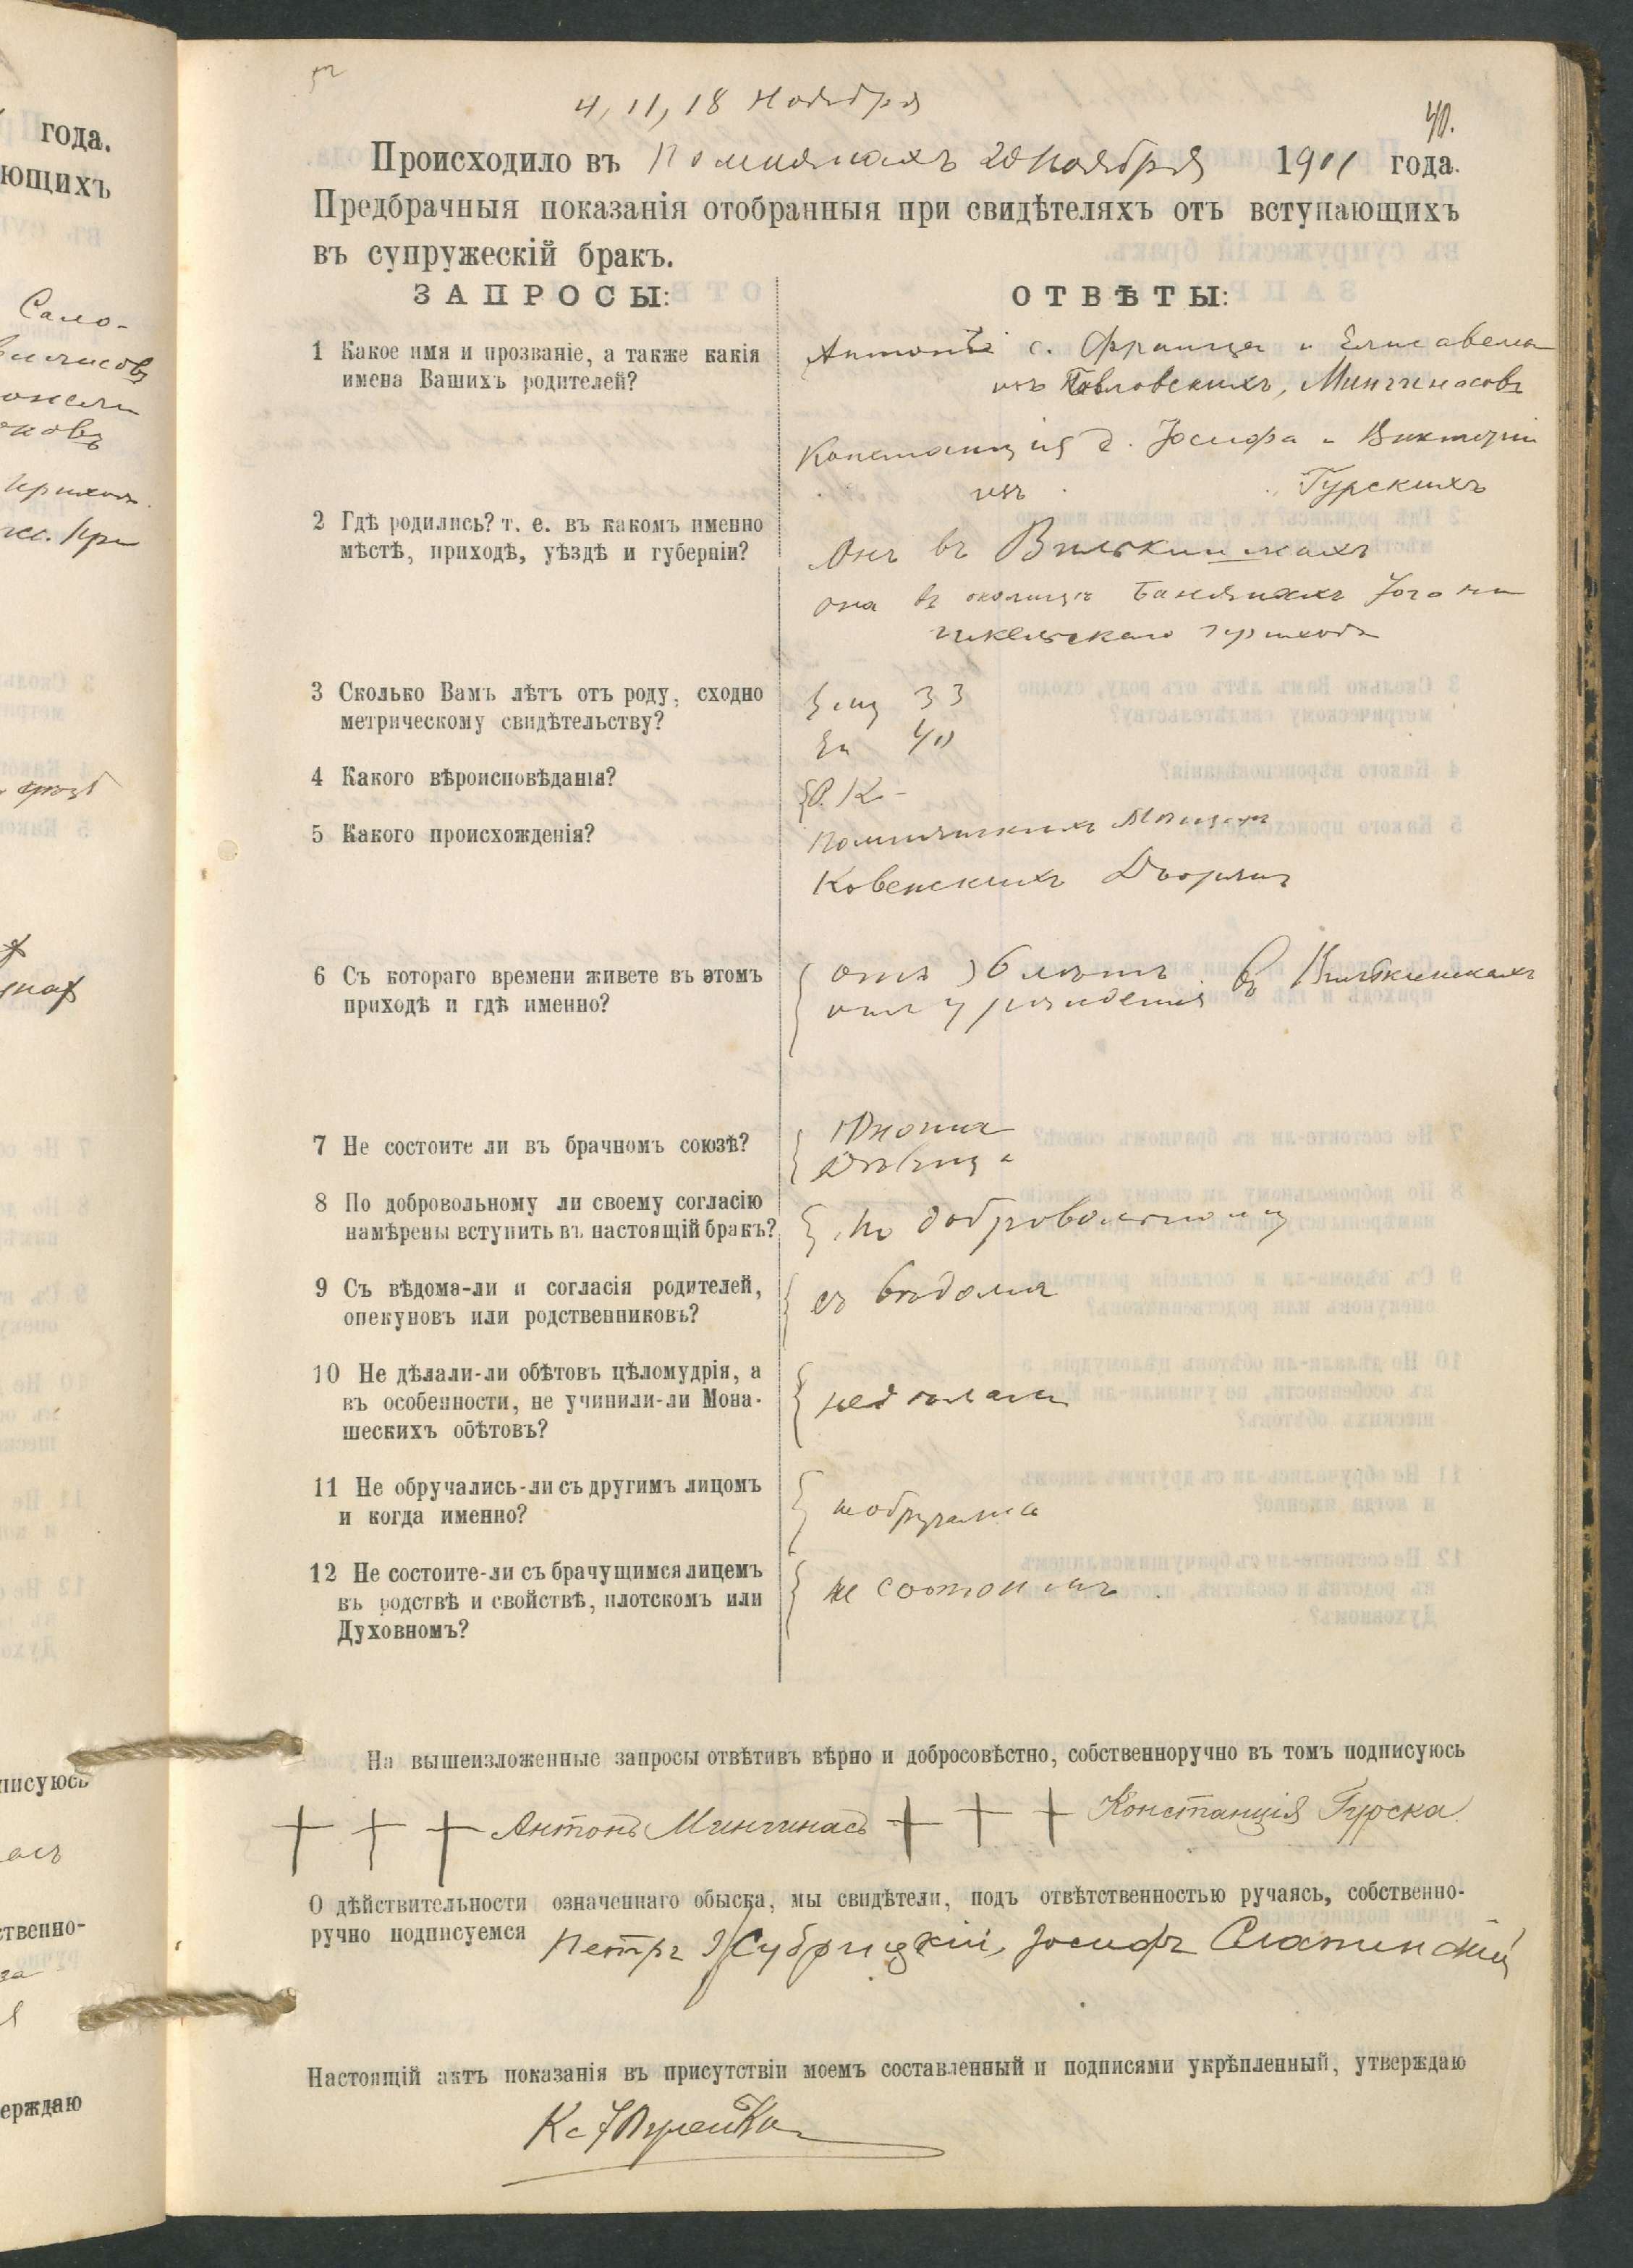 4, 11, 18 Ноября
40.
Происходило въ Помпянахъ 20 Ноября 1901 года.
Предбрачныя показанія отобранныя при свидѣтеляхъ отъ вступающихъ
въ супружескій бракъ.
ЗАПРОСЫ:
ОТВѢТЫ:
1 Какое имя и прозваніе, а также какія
имена Вашихъ родителей?
Антонъ с. Франца и Елисавета
изъ Павловскихъ, Мингинасовъ
Констанція д. Іосифа и Викторіи
изъ Гурскихъ
2 Гдѣ родились? т. е. въ какомъ именно
мѣстѣ, приходѣ, уѣздѣ и губерніи?
Онъ въ Вилькишкахъ
она въ околицѣ
прихода
3 Сколько Вамъ лѣтъ отъ роду, сходно
метрическому свидѣтельству?
Ему 33
Ей 40
4 Какого вѣроисповѣданія?
Р. К.
5 Какого происхожденія?
Помпянскихъ Мѣщанъ
Ковенскихъ Дворянъ
6 Съ котораго времени живете въ этомъ
приходѣ и гдѣ именно?
отъ 6 лѣтъ въ Вилькишкахъ
отъ рожденія
7 Не состоите ли въ брачномъ союзѣ?
Юноша
Дѣвица
8 По добровольному ли своему согласію
намѣрены вступить въ настоящій бракъ?
По добровольному
9 Съ вѣдома-ли и согласія родителей,
опекуновъ или родственниковъ?
съ вѣдома
10 Не дѣлали-ли обѣтовъ цѣломудрія, а
въ особенности, не учинили-ли Мона-
шескихъ обѣтовъ?
недѣлали
11 Не обручались-ли съ другимъ лицомъ
и когда именно?
необручались
12 Не состоите-ли съ брачущимся лицемъ
въ родствѣ и свойствѣ, плотскомъ или
Духовномъ?
не состоимъ
На вышеизложенные запросы отвѣтивъ вѣрно и добросовѣстно, собственноручно въ томъ подписуюсь
+ + + Антонъ Мингинасъ + + + Констанція Гурска
О дѣйствительности означеннаго обыска, мы свидѣтели, подъ отвѣтственностью ручаясь, собственно-
ручно подписуемся Петръ Іосифъ
Настоящій актъ показанія въ присутствіи моемъ составленный и подписями укрѣпленный, утверждаю